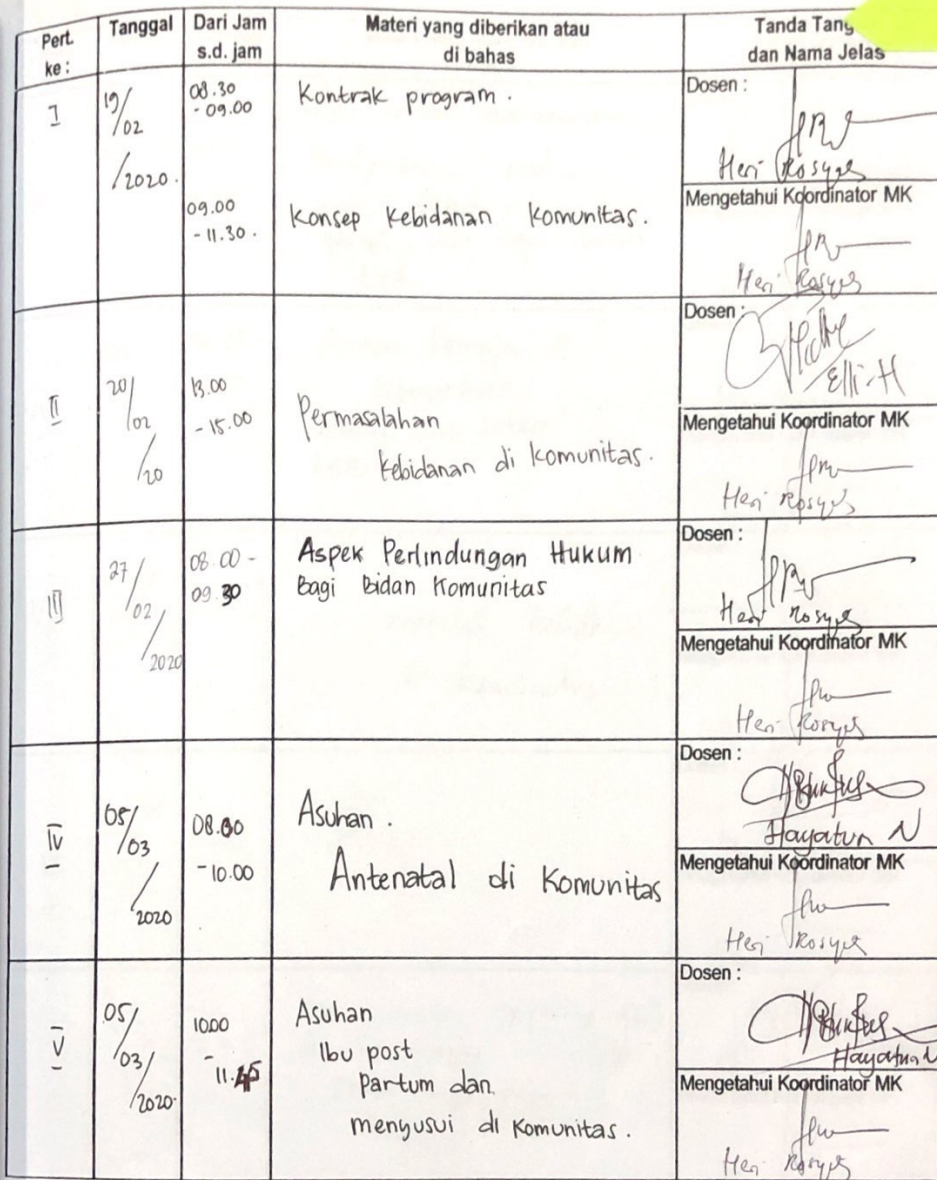 Pert. ke :
Tanggal
Dari Jam s.d. jam
Materi yang diberikan atau di bahas
Tanda Tang
dan Nama Jelas
I
19/02/2020.
08.30 - 09.00
Kontrak program.
09.00 - 11.30.
Konsep Kebidanan Komunitas.
Dosen :
Heri Rosyati
Mengetahui Koordinator MK
Heri Rosyati
II
20/02/20
13.00 - 15.00
Permasalahan
Kebidanan di komunitas.
Dosen :
Elli-H
Mengetahui Koordinator MK
Heri Rosyati
III
27/02/2020
08.00 - 09.30
Aspek Perlindungan Hukum
Bagi Bidan Komunitas
Dosen :
Heri Rosyati
Mengetahui Koordinator MK
Heri Rosyati
IV
05/03/2020
08.00 - 10.00
Asuhan.
Antenatal di Komunitas
Dosen :
Hayatun N
Mengetahui Koordinator MK
Heri Rosyati
V
05/03/2020.
10.00 - 11.45
Asuhan
Ibu post
Partum dan
menyusui di Komunitas.
Dosen :
Hayatun N
Mengetahui Koordinator MK
Heri Rosyati